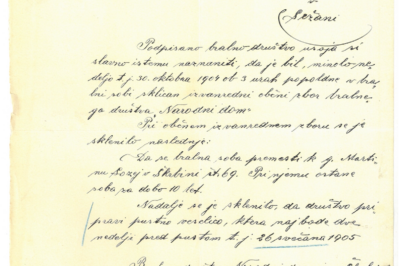 Sežani
Podpisano bralno društvo usoja si
slavno istemu naznaniti, da je bil, minolo ne-
deljo t. j. 30. oktobra 1904 ob 3 urah popoldne v bra-
lni sobi sklican izvanredni občni zbor bralne-
ga društva "Narodni dom"
Pri občnem izvanrednem zboru se je
sklenilo naslednje:
Da se bralna soba premesti k g. Marti-
nu Žožij v Škrbini št. 69. Pri njemu ostane
soba za dobo 10 let.
Nadalje se je sklenilo, da društvo pri-
pravi pustno veselico, ktera naj bode dve
nedelje pred pustom t. j. 26 svečana 1905